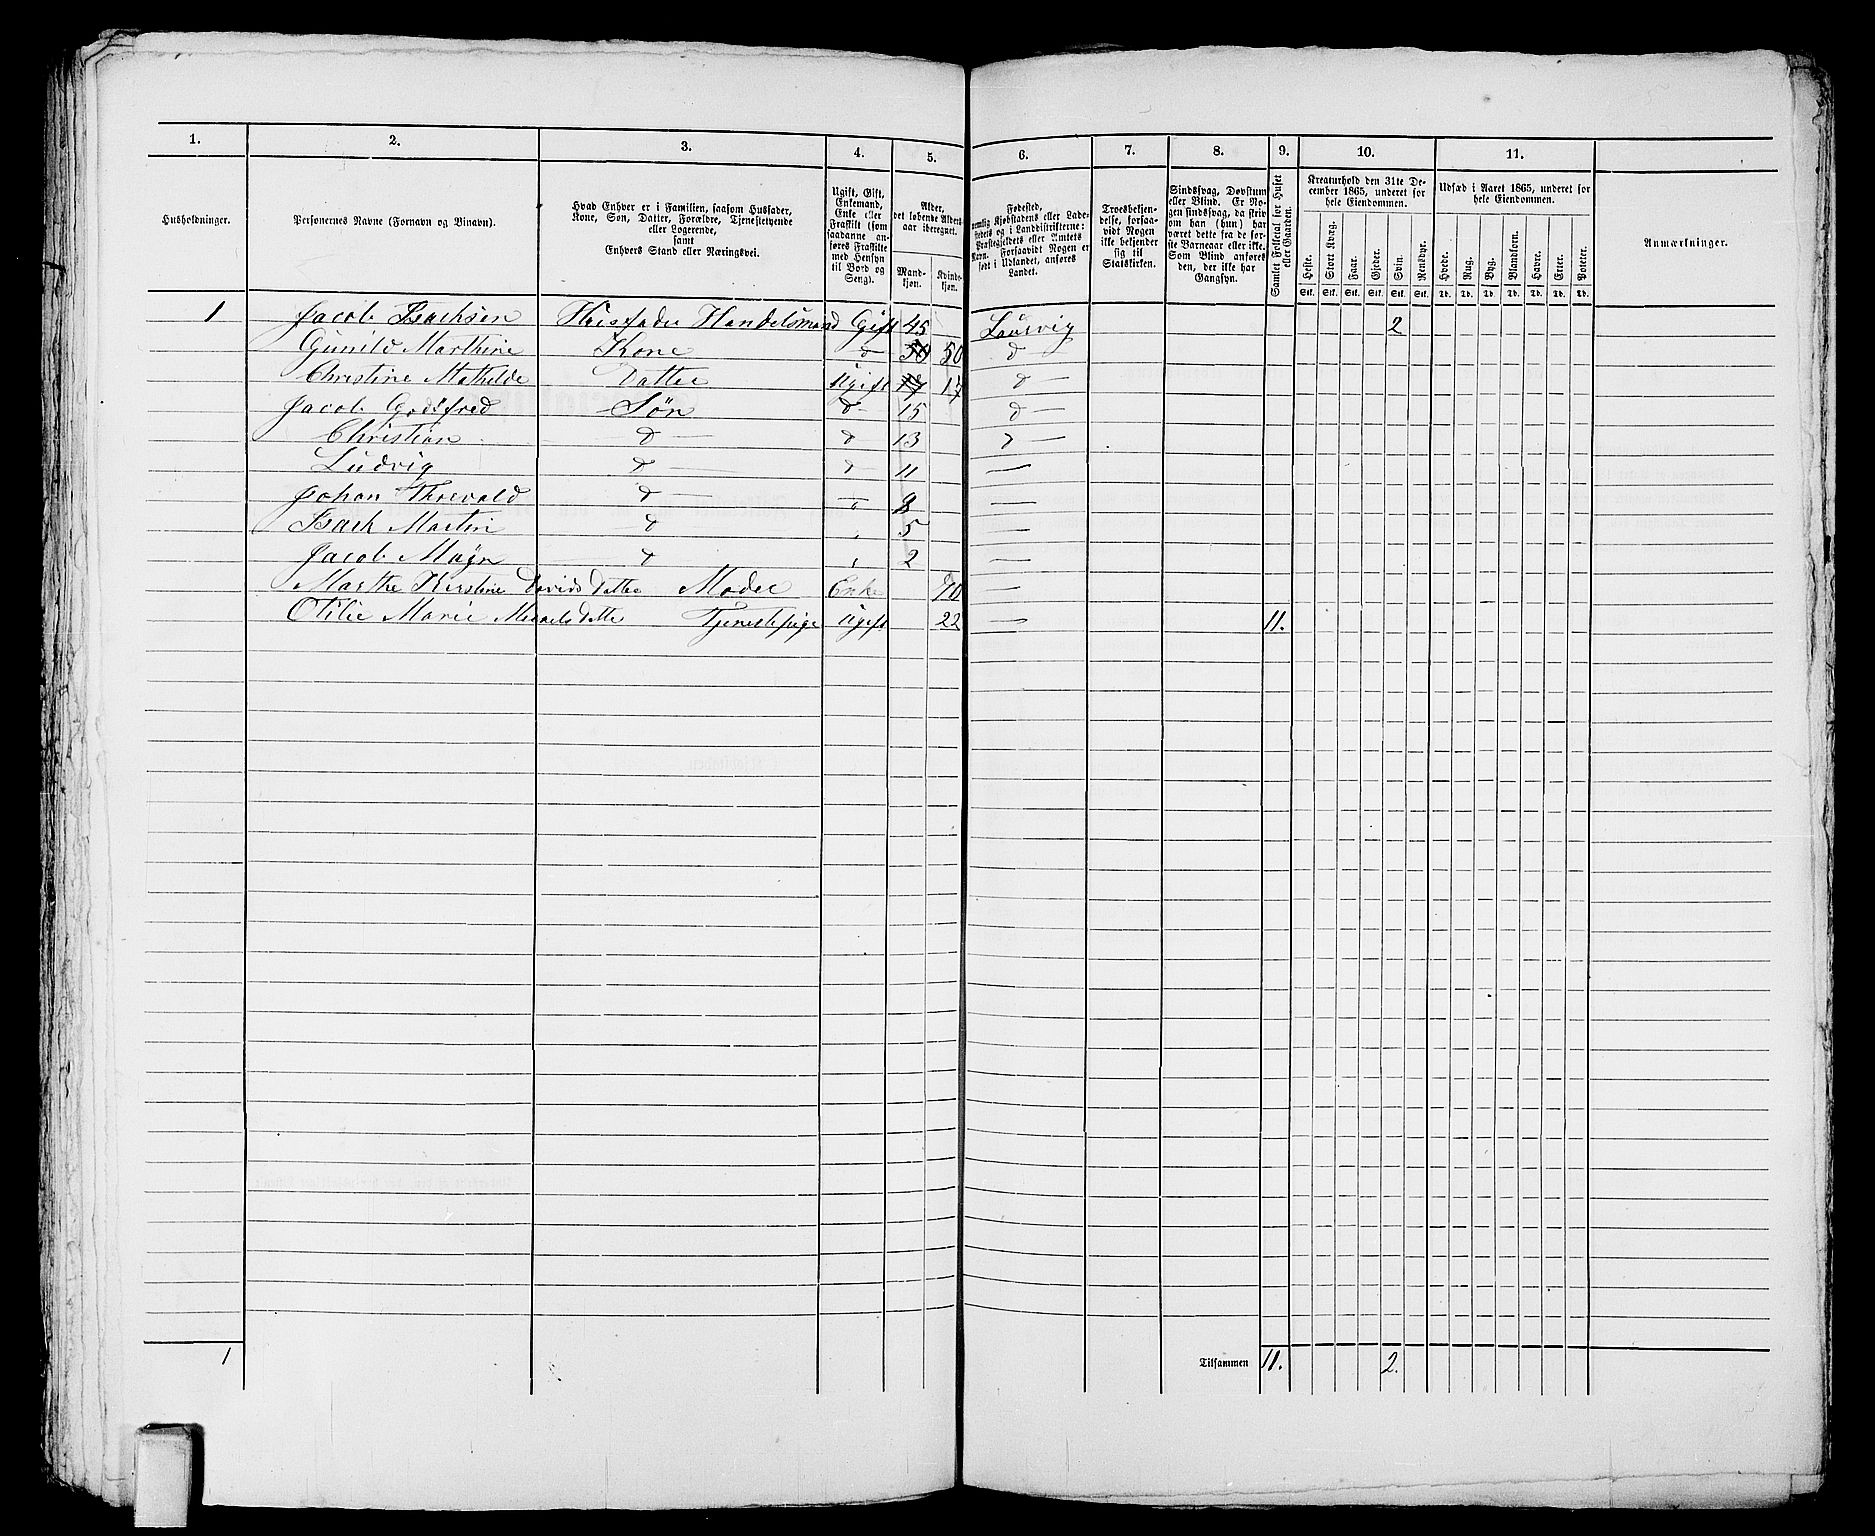 1. 2. 3. 4. 5. 6. 7. 8. 9. 10. 11.
Husholdninger.
Personernes Navne (Fornavn og Binavn).
Hvad Enhver er i Familien, saasom Husfader,
Kone, Søn, Datter, Forældre, Tjenestetyende
eller Logerende,
samt
Enhvers Stand eller Næringsvei.
Ugift, Gift,
Enkemand,
Enke eller
Fraskilt (som
saadanne an-
føres Fraskilte
med Hensyn
til Bord og
Seng).
Alder,
det løbende Alders-
aar iberegnet.
Mand-
kjøn.
Kvinde-
kjøn.
Fødested,
nemlig Kjøbstadens eller Lade-
stedets og i Landdistrikterne:
Præstegjeldets eller Amtets
Navn. Forsaavidt Nogen er
født i Udlandet, anføres
Landet.
Troesbekjen-
delse, forsaa-
vidt Nogen
ikke bekjender
sig til
Statskirken.
Sindssvag, Døvstum
eller Blind. Er No-
gen sindssvag, da skriv
om han (hun) har
været dette fra de før-
ste Barneaar eller ikke.
Som Blind anføres
den, der ikke har
Gangsyn.
Samlet Folketal for Huset
eller Gaarden.
Kreaturhold den 31te De-
cember 1865, underet for
hele Eiendommen.
Heste. Stort Kvæg. Faar. Gjeder. Svin. Rensdyr.
Stk. Stk. Stk. Stk. Stk. Stk.
Udsæd i Aaret 1865, underet for
hele Eiendommen.
Hvede. Rug. Byg. Blandkorn. Havre. Erter. Poteter.
Td. Td. Td. Td. Td. Td. Td.
Anmærkninger.
1 Jacob Isachsen Husfader Handelsmand Gift 45 Laurvig 2
Gunild Marthine Kone d 50 50 d
Christine Mathilde Datter Ugift 17 17 d
Jacob Godtfred Søn d 15 d
Christian d d 13 d
Ludvig d d 11 —
Johan Thorvald d d —
Isach Martin d 5 —
Jacob Magn d 2 —
Marthe Kirstine Davids Datter Moder Enke 70 —
Otilie Marie Datter Tjenestepige Ugift 22 — 11.
1 Tilsammen 11. 2.